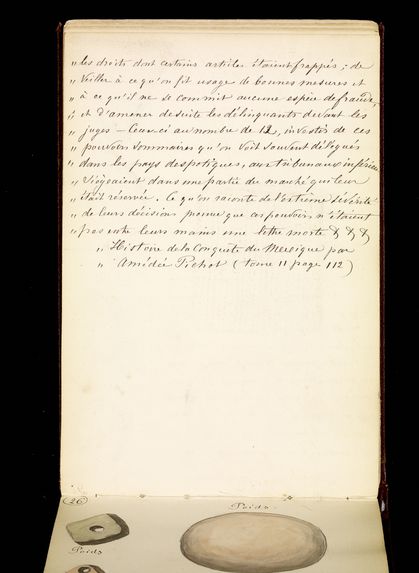 „ des droits dont certains articles étaient frappés; de
„ Veiller à ce qu'on fit usage de bonnes mesures et
„ à ce qu'il ne se commit aucune espèce de fraude,
„ et d'amener de suite les délinquants devant les
„ juges – Ceux-ci au nombre de 12, investis de ces
„ pouvoirs sommaires qu'on voit souvent délégués
„ dans les pays despotiques, aux tribunaux inférieurs
„ Siégeaient dans une partie du marché qui leur
„ était réservée. Ce qu'on raconte de l'extrême sévérité
„ de leurs décisions prouve que ces pouvoirs n'étaient
„ pas entre leurs mains une lettre morte & & &
„ Histoire de la Conquête du Mexique par
„ Amédée Pichot (tome 11 page 112)
26
Poids.
Poids